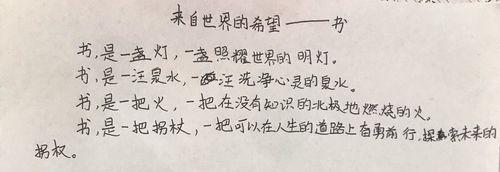 来自世界的希望——书
书,是一盏灯,一盏照耀世界的明灯。
书,是一汪泉水,一汪洗净心灵的泉水。
书,是一把火,一把在没有知识的北极地燃烧的火。
书,是一把拐杖,一把可以在人生的道路上奋勇前行,探索未来的
拐杖。